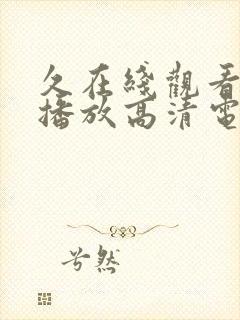 久在綫觀看
播放高清電
兮然